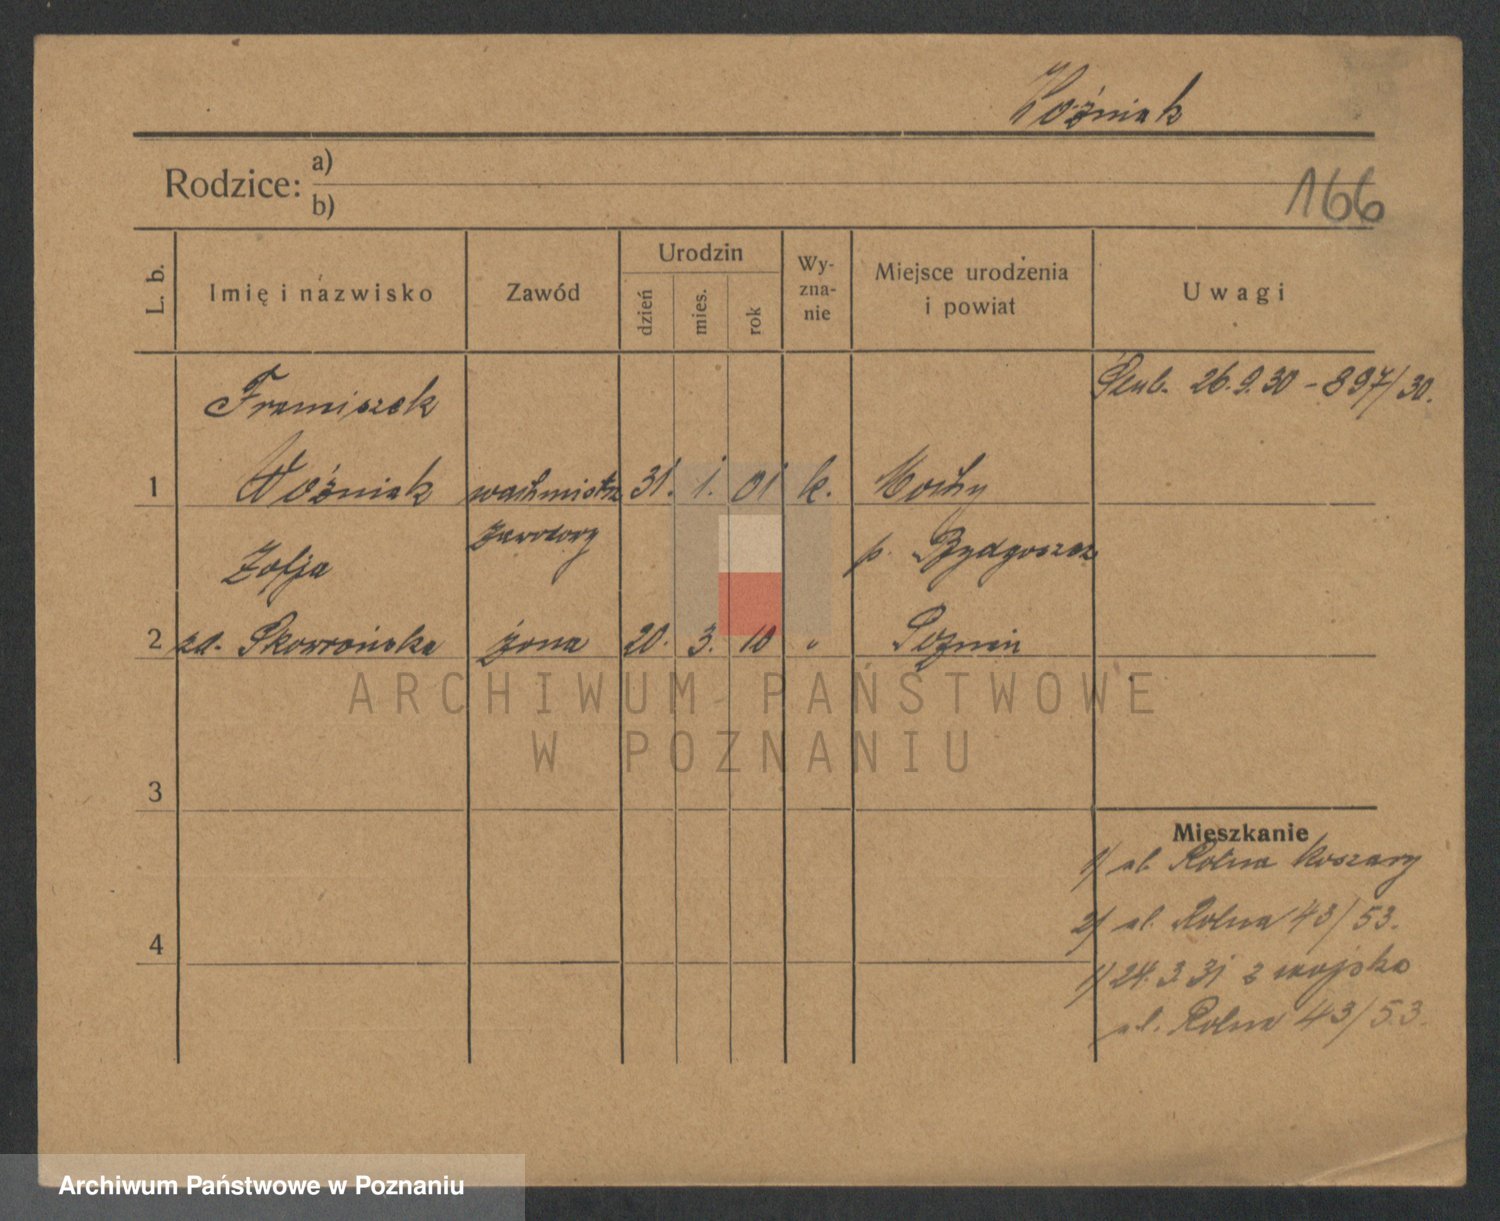 Woźniak
Rodzice: a)
b)
166
L. b. Imię i nazwisko Zawód Urodzin dzień mies. rok Wy-zna-nie Miejsce urodzenia i powiat Uwagi
Franciszek Ślub. 26.9.30 - 897/30.
1 Woźniak wachmistrz 31. 1. 01 k. Mochy
zawodowy p. Bydgoszcz
Zofja
2 zd. Skowrońska żona 20. 3. 10 " Poznań
ARCHIWUM PAŃSTWOWE
W POZNANIU
3
Mieszkanie
1/ ul. Rolna Koszary
2/ ul. Rolna 43/53.
4
1/ 24.3.31 z wojska
ul. Rolna 43/53.
Archiwum Państwowe w Poznaniu